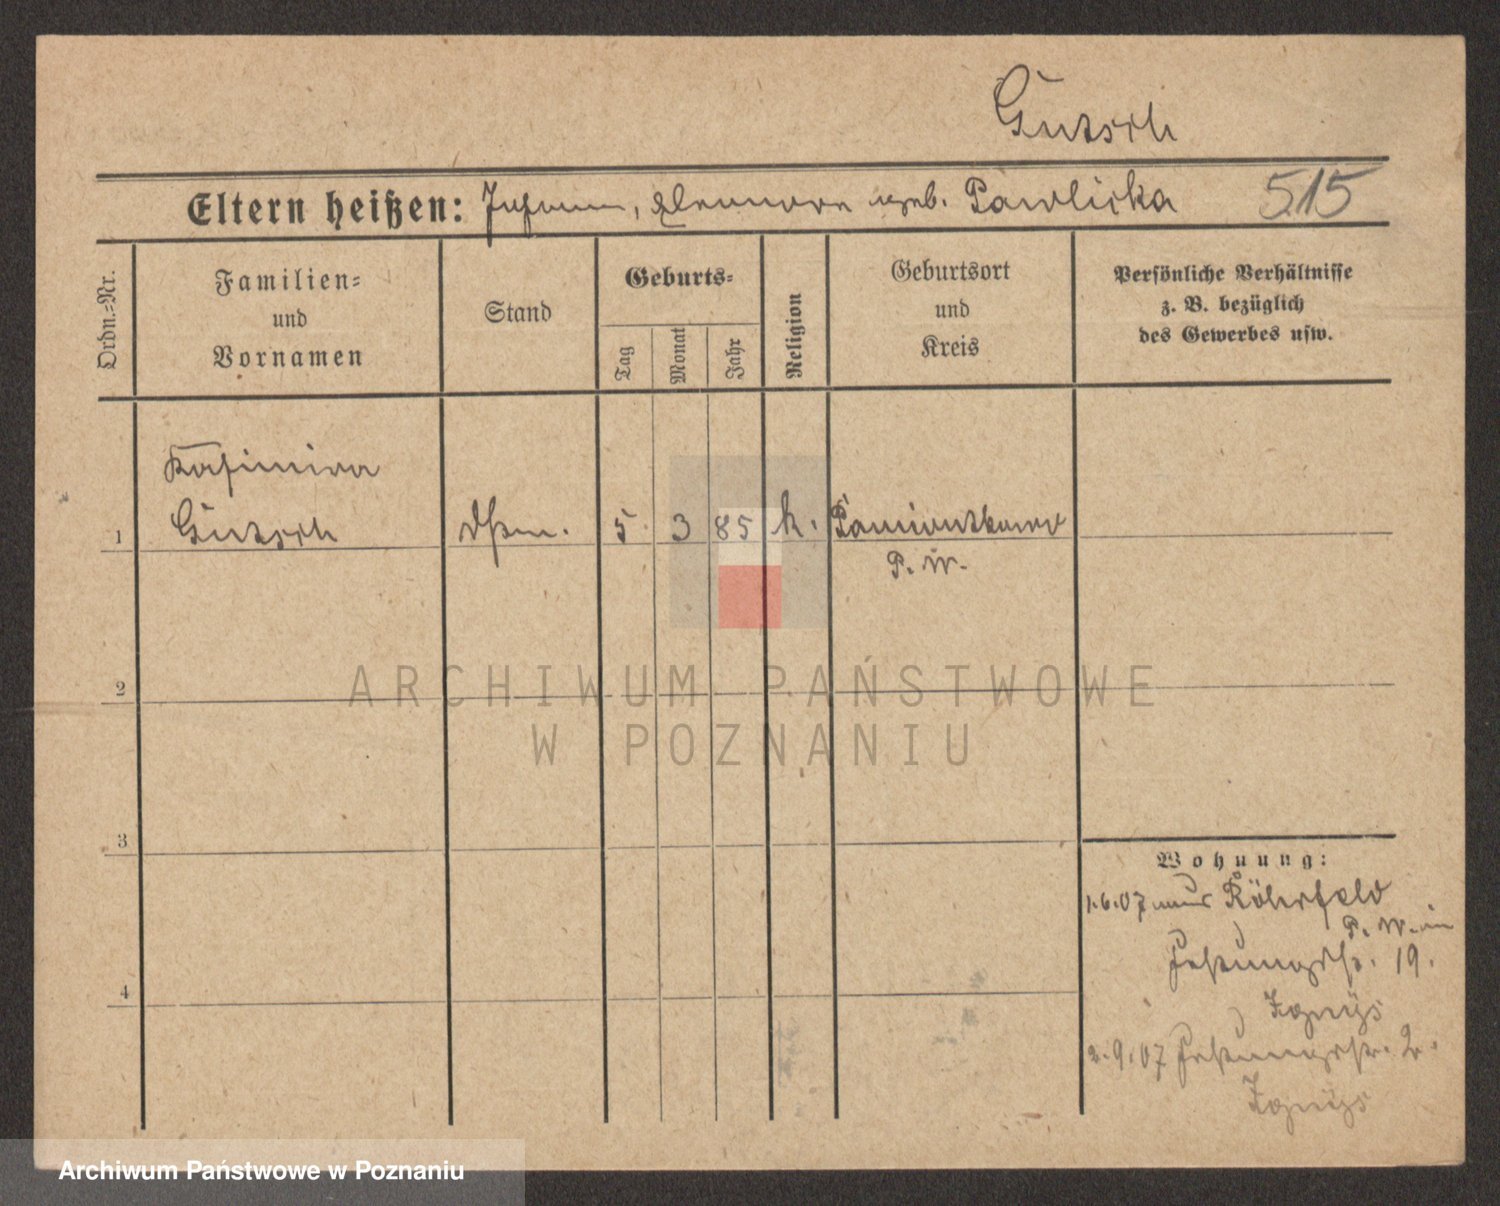 Gutsch
Eltern heißen: Johann, Eleonore geb. Pawlicka 515
Ordn.-Nr.
Familien-
und
Vornamen
Stand
Geburts-
Tag
Monat
Jahr
Religion
Geburtsort
und
Kreis
Persönliche Verhältnisse
z. B. bezüglich
des Gewerbes usw.
Kasimira
1 Gutsch 5. 3 85 k. Pamiontkowo
P. W.
2
3
4
Wohnung:
1.6.07 aus Röhrfeld
P. W. in
Festungsstr. 19.
2.9.07 Festungsstr. 2.
ARCHIWUM PAŃSTWOWE
W POZNANIU
Archiwum Państwowe w Poznaniu